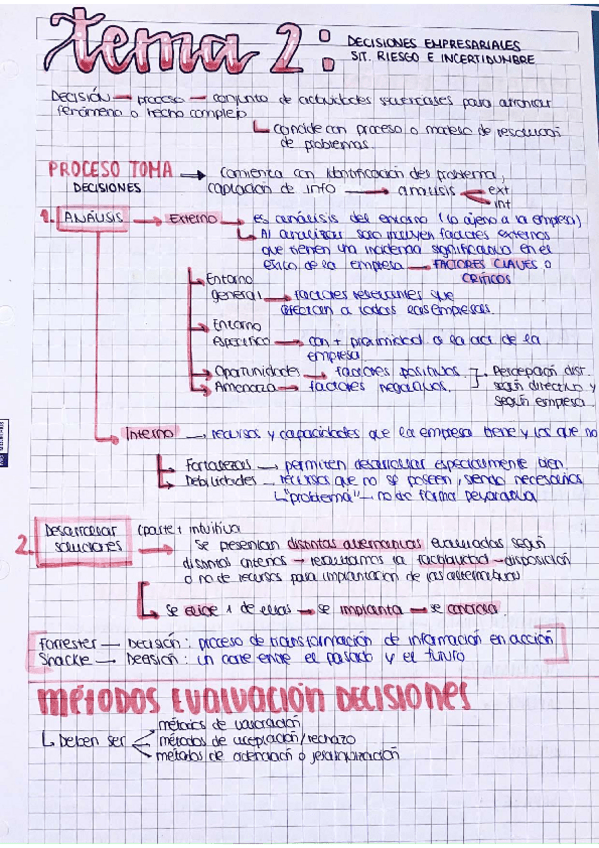 tema 2:
DECISIONES EMPRESARIALES
SIT. RIESGO E INCERTIDUMBRE
DECISIÓN → proceso → conjunto de actividades secuenciales para afrontar
fenómeno o hecho complejo
coincide con proceso o modelo de resolución
de problemas.
PROCESO TOMA → comienza con identificación del problema,
DECISIONES captación de info → análisis ext
int
1. ANÁLISIS → Externo → es análisis del entorno (lo ajeno a la empresa)
Al analizar solo incluyen factores externos
que tienen una incidencia significativa en el
éxito de la empresa → FACTORES CLAVES o
CRÍTICOS
Entorno
general → factores relevantes que
afectan a todas las empresas.
Entorno
Específico → con + proximidad a la act de la
empresa
Oportunidades → factores positivos. Percepción dist.
Amenaza → factores negativos. según directivo y
según empresa.
Interno → recursos y capacidades que la empresa tiene y los que no
Fortalezas → permiten desarrollar especialmente bien.
Debilidades → recursos que no se poseen, siendo necesarios
"problema" → no de forma peyorativa
2. Desarrollar (parte + intuitiva
soluciones → Se presentan distintas alternativas evaluadas según
distintos criterios → resaltamos la factibilidad → disposición
o no de recursos para implantación de las alternativas
Se elige 1 de ellas → se implanta → se controla.
Forrester — Decisión: proceso de transformación de información en acción
Shackle — Decisión: un corte entre el pasado y el futuro
MÉTODOS EVALUACIÓN DECISIONES
Deben ser métodos de valoración
métodos de aceptación/rechazo
métodos de ordenación o jerarquización